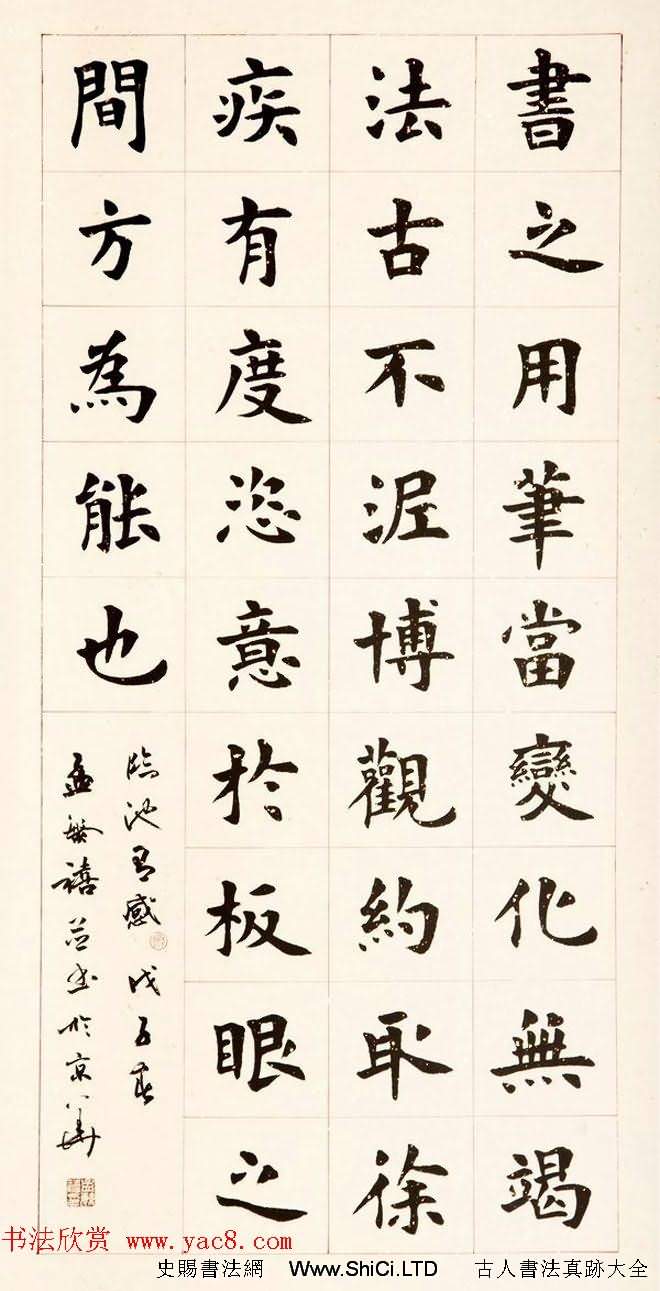 書之用筆當變化無竭
法古不泥博觀約取徐
疾有度恣意於板眼之
間方為能也
臨池有感 戊子春
孟繁禧并書於京華
书法欣赏 www.yac8.com
史賜書法網 Www.ShiCi.LTD 古人書法真跡大全